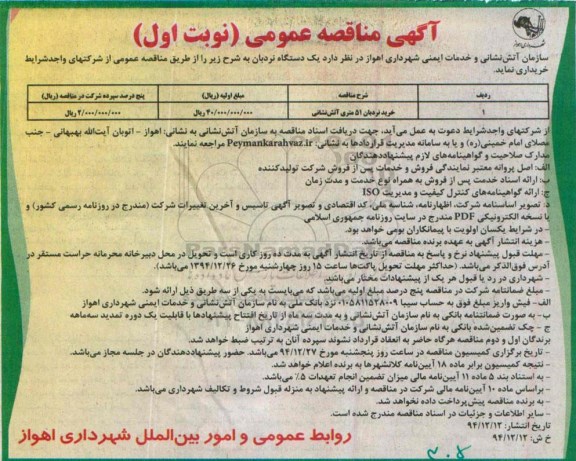 شهرداری اهواز
آگهی مناقصه عمومی (نوبت اول)
سازمان آتش‌نشانی و خدمات ایمنی شهرداری اهواز در نظر دارد یک دستگاه نردبان به شرح زیر را از طریق مناقصه عمومی از شرکتهای واجدشرایط
خریداری نماید.
ردیف شرح مناقصه مبلغ اولیه (ریال) پنج درصد سپرده شرکت در مناقصه (ریال)
۱ خرید نردبان ۵۱ متری آتش‌نشانی ۴۰/۰۰۰/۰۰۰/۰۰۰ ریال ۲/۰۰۰/۰۰۰/۰۰۰ ریال
از شرکتهای واجدشرایط دعوت به عمل می‌آید، جهت دریافت اسناد مناقصه به سازمان آتش‌نشانی به نشانی: اهواز - اتوبان آیت‌الله بهبهانی - جنب
مصلای امام خمینی(ره) و یا به سامانه مدیریت قراردادها به نشانی: Peymankarahvaz.ir مراجعه نمایند.
مدارک صلاحیت و گواهینامه‌های لازم پیشنهاددهندگان
الف: اصل پروانه معتبر نمایندگی فروش و خدمات پس از فروش شرکت تولیدکننده
ب: ارائه اسناد خدمت پس از فروش به همراه نوع خدمت و مدت زمان
ج: ارائه گواهینامه‌های کنترل کیفیت و مدیریت ISO
د: تصویر اساسنامه شرکت، اظهارنامه، شناسه ملی، کد اقتصادی و تصویر آگهی تاسیس و آخرین تغییرات شرکت (مندرج در روزنامه رسمی کشور) و
یا نسخه الکترونیکی PDF مندرج در سایت روزنامه جمهوری اسلامی
- در شرایط یکسان اولویت با پیمانکاران بومی خواهد بود.
- هزینه انتشار آگهی به عهده برنده مناقصه می‌باشد.
- مهلت قبول پیشنهاد نرخ و پاسخ به مناقصه از تاریخ انتشار آگهی به مدت ده روز کاری است و تحویل در محل دبیرخانه محرمانه حراست مستقر در
آدرس فوق‌الذکر می‌باشد. (حداکثر مهلت تحویل پاکت‌ها ساعت ۱۵ روز چهارشنبه مورخ ۱۳۹۴/۱۲/۲۶ می‌باشد).
- شهرداری در رد یا قبول هر یک از پیشنهادات مختار می‌باشد.
- مبلغ ضمانتنامه شرکت در مناقصه پنج درصد مبلغ اولیه می‌باشد که می‌بایست به یکی از سه طریق ذیل ارائه شود.
الف - فیش واریز مبلغ فوق به حساب سیبا ۰۱۰۵۸۱۱۵۲۸۰۰۹ نزد بانک ملی به نام سازمان آتش‌نشانی و خدمات ایمنی شهرداری اهواز
ب - به صورت ضمانتنامه بانکی به نام سازمان آتش‌نشانی و به مدت سه ماه از تاریخ افتتاح پیشنهادها با قابلیت یک دوره تمدید سه‌ماهه
ج - چک تضمین‌شده بانکی به نام سازمان آتش‌نشانی و خدمات ایمنی شهرداری اهواز
برندگان اول و دوم مناقصه هرگاه حاضر به انعقاد قرارداد نشوند سپرده آنان به ترتیب ضبط خواهد شد.
- تاریخ برگزاری کمیسیون مناقصه در ساعت روز پنجشنبه مورخ ۹۴/۱۲/۲۷ می‌باشد. حضور پیشنهاددهندگان در جلسه مجاز می‌باشد.
- نتیجه کمیسیون برابر ماده ۱۸ آیین‌نامه کلانشهرها به برنده اعلام خواهد شد.
- به استناد بند ۵ ماده ۱۱ آیین‌نامه مالی میزان تضمین انجام تعهدات ۵٪ می‌باشد.
- براساس ماده ۱۰ آیین‌نامه مالی شرکت در مناقصه و ارائه پیشنهاد به منزله قبول شروط و تکالیف شهرداری می‌باشد.
- به برنده مناقصه پیش‌پرداخت داده نخواهد شد.
- سایر اطلاعات و جزئیات در اسناد مناقصه مندرج شده است.
تاریخ انتشار: ۹۴/۱۲/۱۲
خ ش: ۹۴/۱۲/۱۲
روابط عمومی و امور بین‌الملل شهرداری اهواز